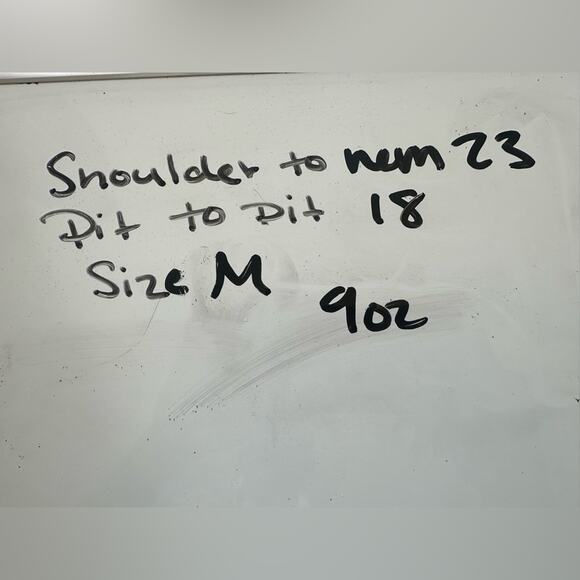 Shoulder to hem 23
Pit to Pit 18
Size M
9oz